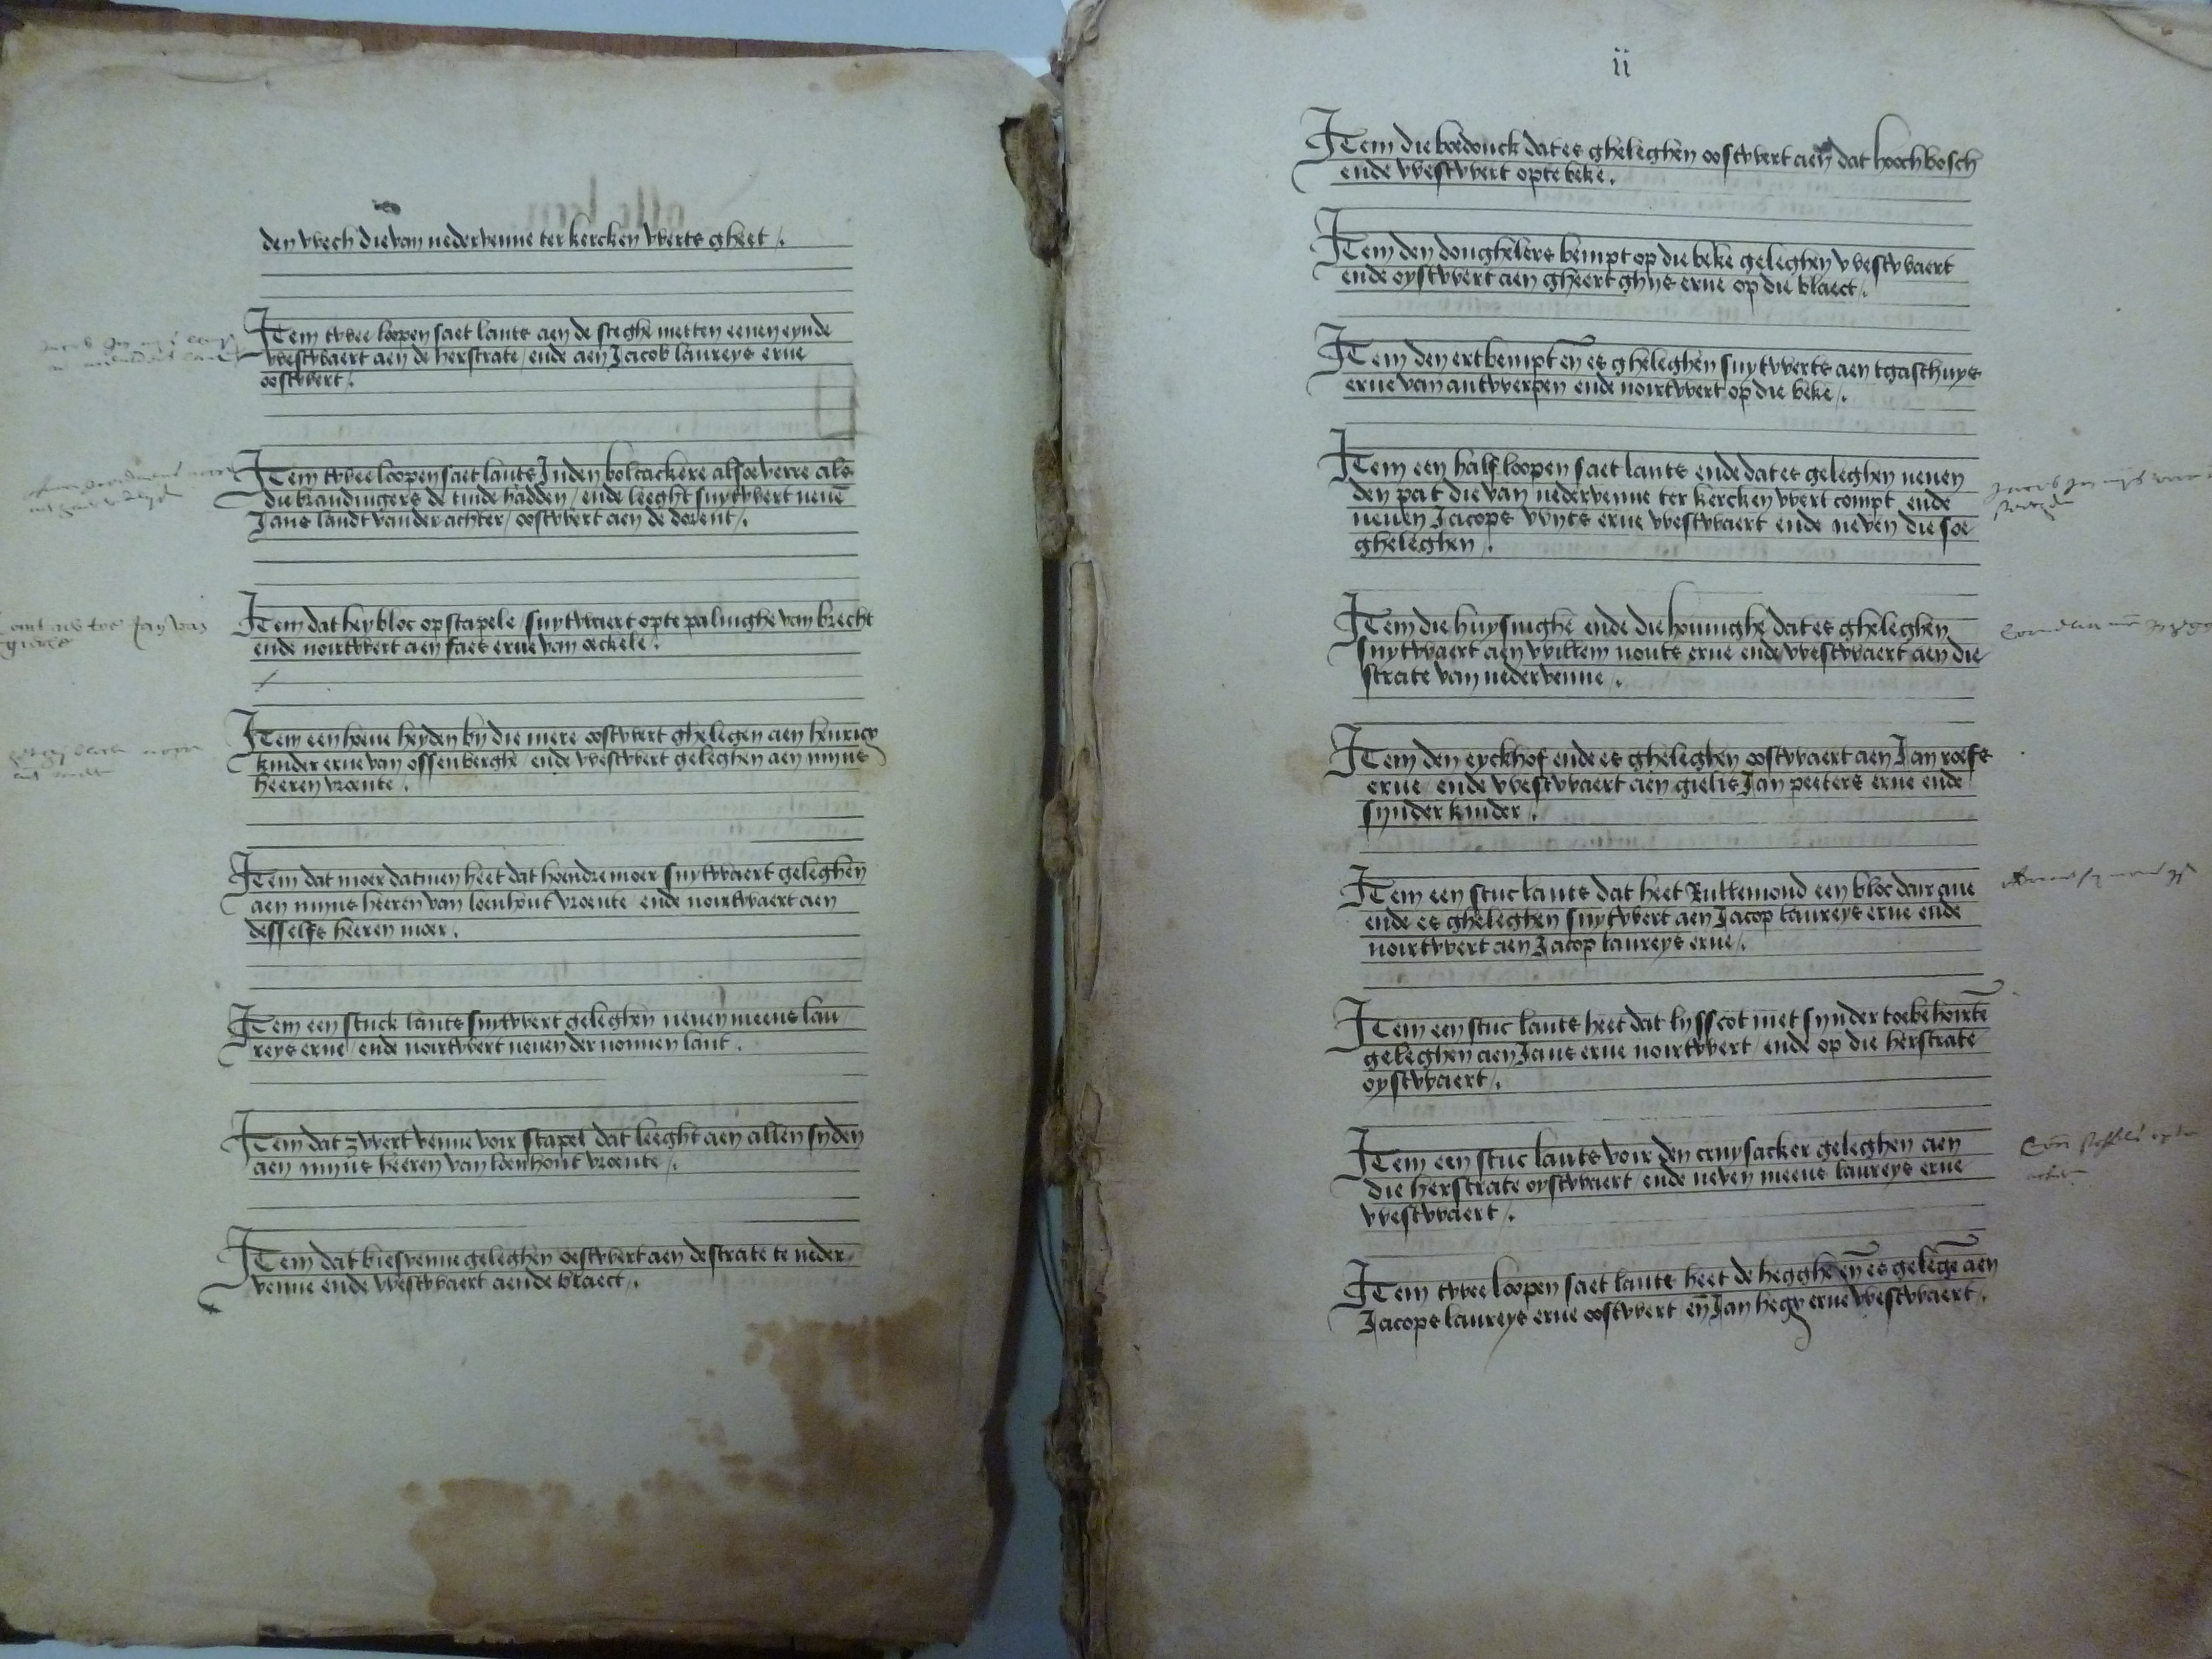 den wech die van nedervenne ter kercken werts gheet
Item twee loopen saet lants aen de steghe metten eenen eynde
westwaert aen de herstrate / ende aen Jacob laureys erue
oostwert
Item twee loopen saet lants Inden bolcackere alsoe verre als
die brandingers de tinde hadden / ende leeght suytwert neuē
Jans landt vander achter / oostwert aen de dorent
Item dat heybloc op stapele / suytwaert opte palinghe van brecht
ende noirtwert aen faes erue van oeckele
Item een hoeue heyden by die mere oostwert ghelegen aen henricx
kinder erue van ossenberghe / ende westwert geleghen aen mijns
heeren vroente
Item dat moer datmen heet dat hoendre moer suytwaert geleghen
aen mijns heeren van loenhout vroente / ende noirtwaert aen
desselfs heeren moer
Item een stuck lants suytwert geleghen neuen meeus lau
reys erue / ende noirtwert neuen der nonnen lant
Item dat zwert venne voir stapel dat leeght aen allen syden
aen mijns heeren van loenhout vroente
Item dat biesvenne geleghen oestwert aen de strate te neder
venne ende westwaert aende blaect
ii
Item die boedonck dat es gheleghen oostwert aen dat hoochbosch
ende westwert opte beke
Item den donghelers bempt op die beke geleghen westwaert
ende oystwert aen gheert ghijs erue op die blaect
Item den ertbempt eñ es gheleghen suytwerts aen tgasthuys
erue van antwerpen ende noirtwert op die beke
Item een half loopen saet lants ende dat es geleghen neuen
den pat die van nedervenne ter kercken wert compt ende
neuen Jacops wijts erue westwaert ende neven die soe
gheleghen
Item die huysinghe ende die houinghe dat es gheleghen
suytwaert aen willem nouts erue ende westwaert aen die
strate van nedervenne
Item den eyckhof ende es gheleghen oostwaert aen Jan roefs
erue / ende westwaert aen gielis Jan peeters erue ende
synder kinder
Item een stuc lants dat heet Rullemond een bloc dair aue
ende es gheleghen suytwert aen Jacop laureys erue ende
noirtwert aen Jacop laureys erue
Item een stuc lants heet dat lysscot met synder toebehoirtē
geleghen aen Jans erue noirtwert / ende op die herstrate
oystwaert
Item een stuc lants voir den cruysacker geleghen aen
die herstrate oystwaert / ende neven meeus laureys erue
westwaert
Item twee loopen saet lants heet de hegghe eñ es gelegē aen
Jacops laureys erue oostwert eñ Jan hegx erue westwaert